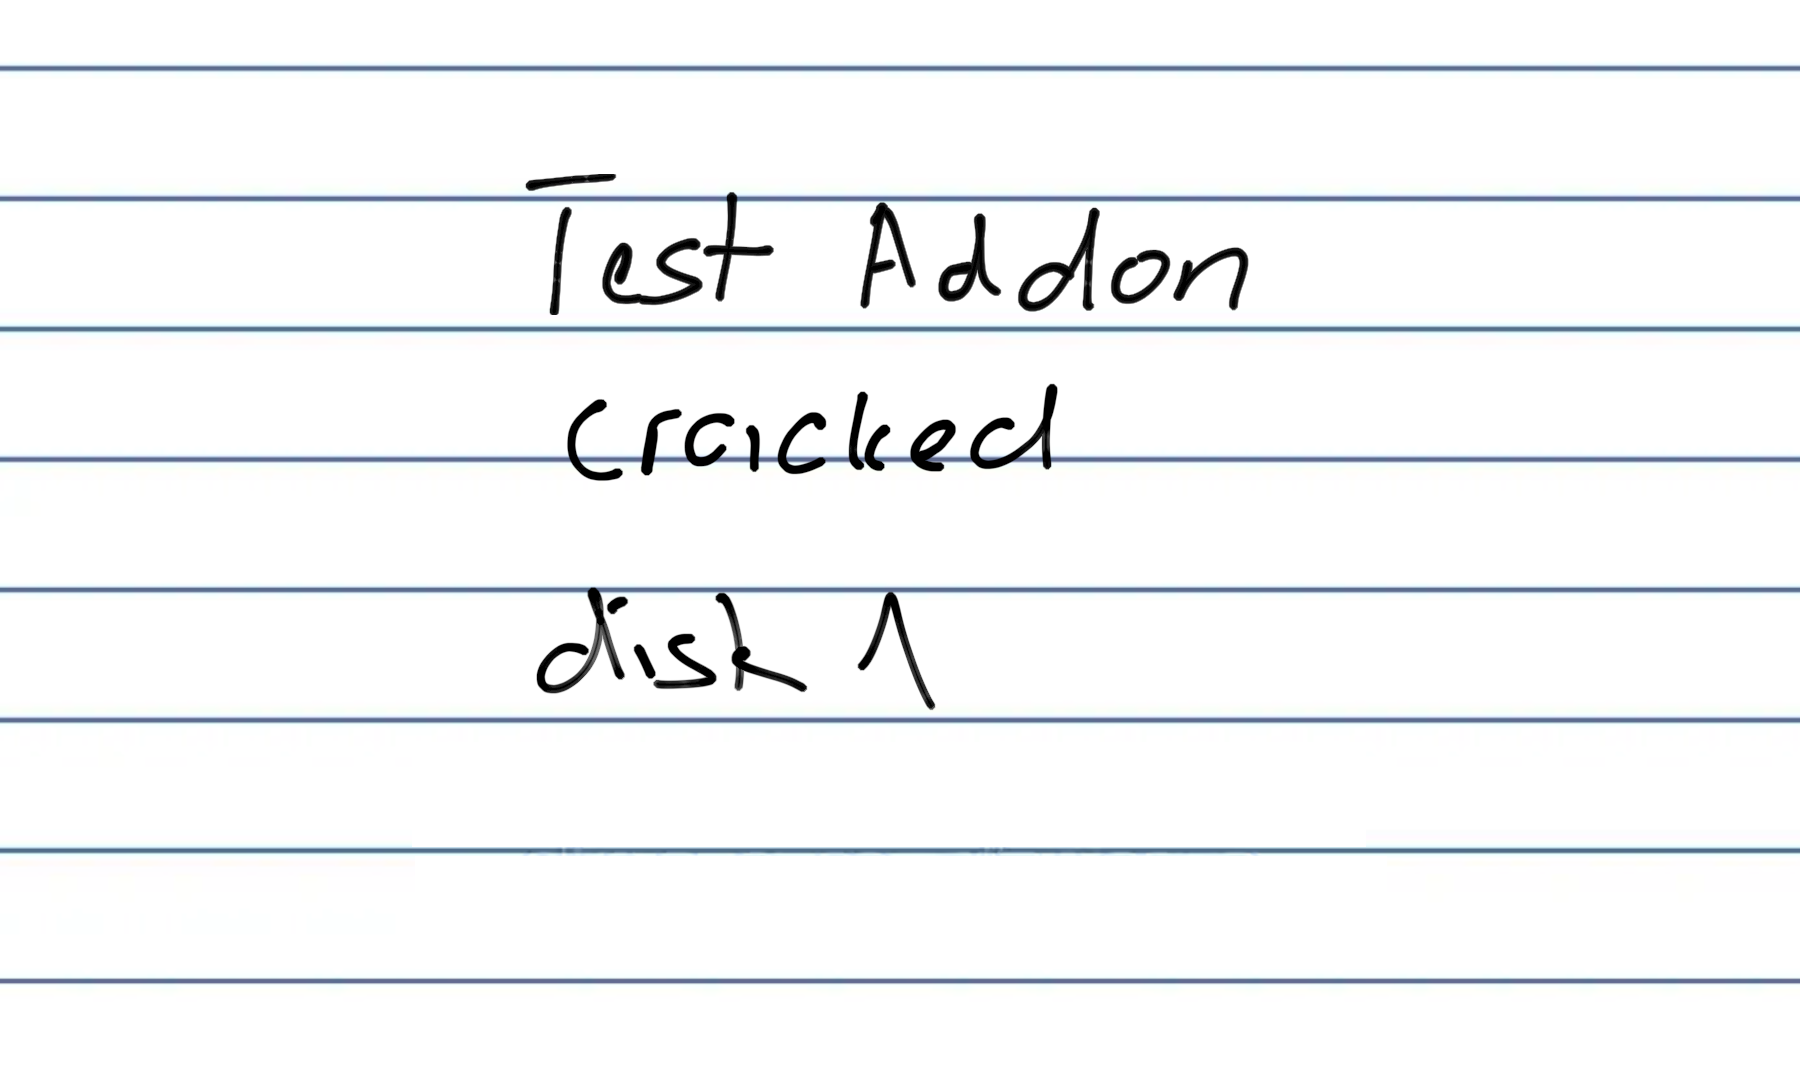 Test Addon
cracked
disk 1